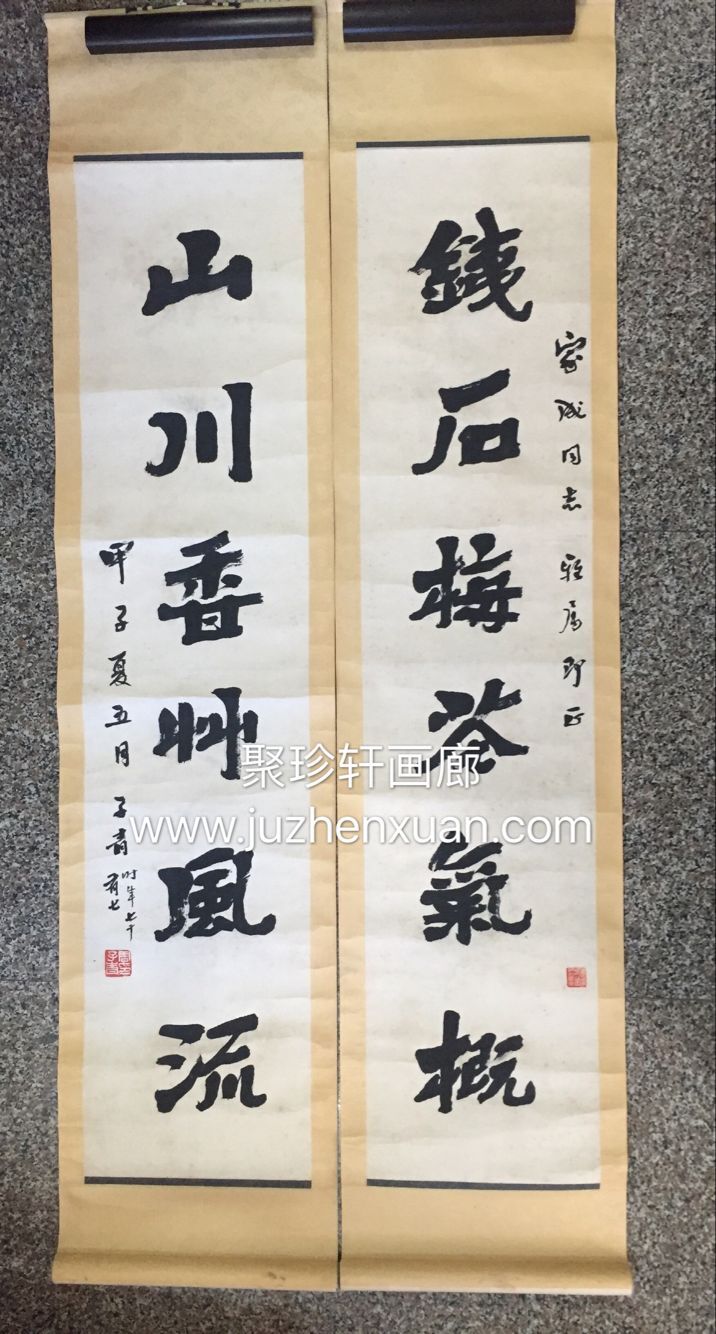 家成同志 雅属即正
鐵石梅花氣概
山川香艸風流
甲子夏五月 子青时年七十
有七
聚珍轩画廊
www.juzhenxuan.com